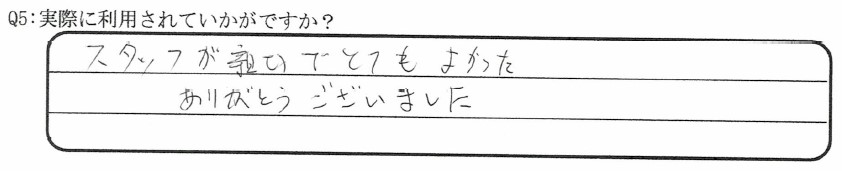 Q5:実際に利用されていかがですか？
スタッフが親切でとてもよかった
ありがとうございました